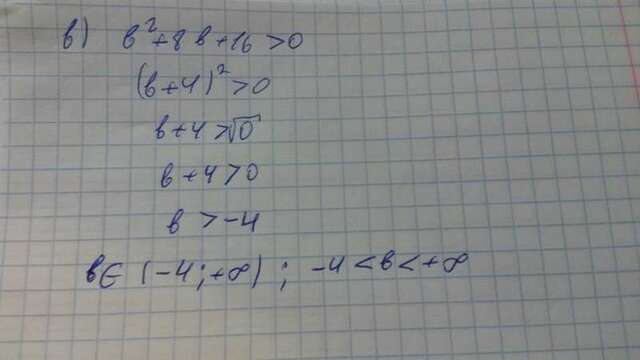 в) в²+8в+16>0
(в+4)²>0
в+4>√0
в+4>0
в>-4
в∈(-4;+∞); -4<в<+∞